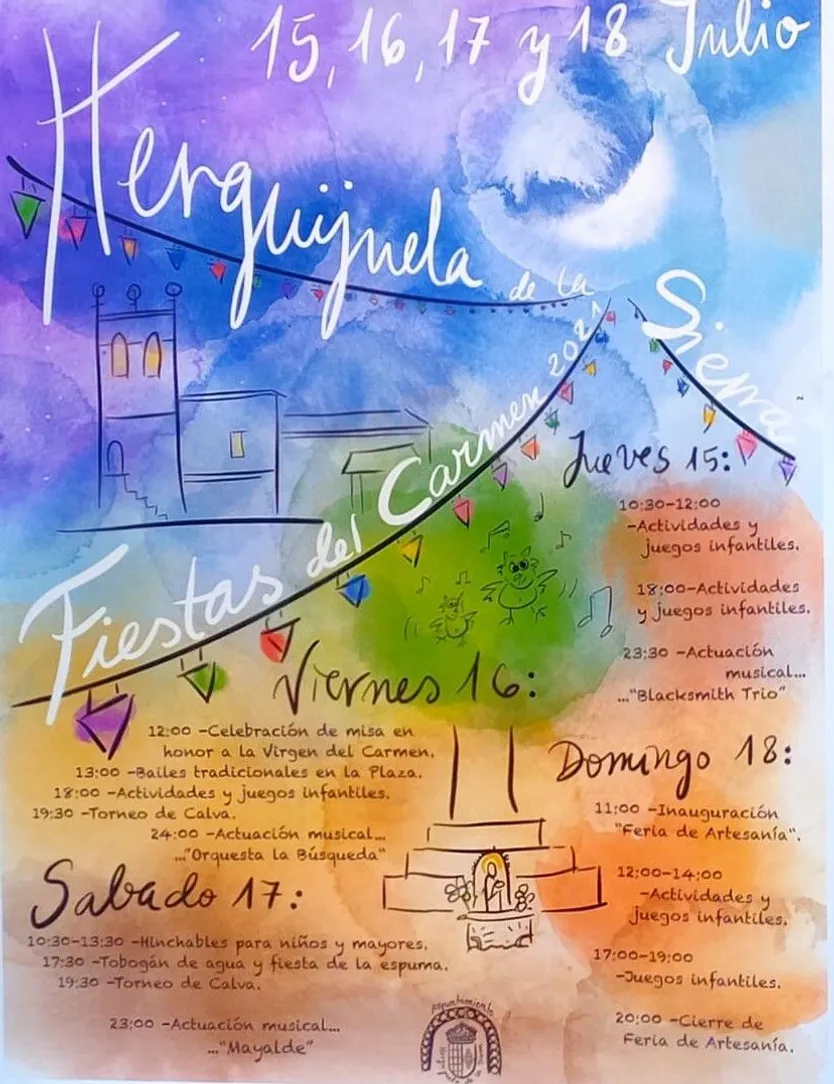 15, 16, 17 y 18 Julio
Herguijuela
de la
Sierra
Fiestas del Carmen 2021
Jueves 15:
10:30-12:00
-Actividades y
juegos infantiles.
18:00-Actividades
y juegos infantiles.
23:30 -Actuación
musical...
..."Blacksmith Trio"
Viernes 16:
12:00 -Celebración de misa en
honor a la Virgen del Carmen.
13:00 -Bailes tradicionales en la Plaza.
18:00 -Actividades y juegos infantiles.
19:30 -Torneo de Calva.
24:00 -Actuación musical...
..."Orquesta la Búsqueda"
Sabado 17:
10:30-13:30 -Hinchables para niños y mayores.
17:30 -Tobogán de agua y fiesta de la espuma.
19:30 -Torneo de Calva.
23:00 -Actuación musical...
..."Mayalde"
Domingo 18:
11:00 -Inauguración
"Feria de Artesanía".
12:00-14:00
-Actividades y
juegos infantiles.
17:00-19:00
-Juegos infantiles.
20:00 -Cierre de
Feria de Artesanía.
Ayuntamiento